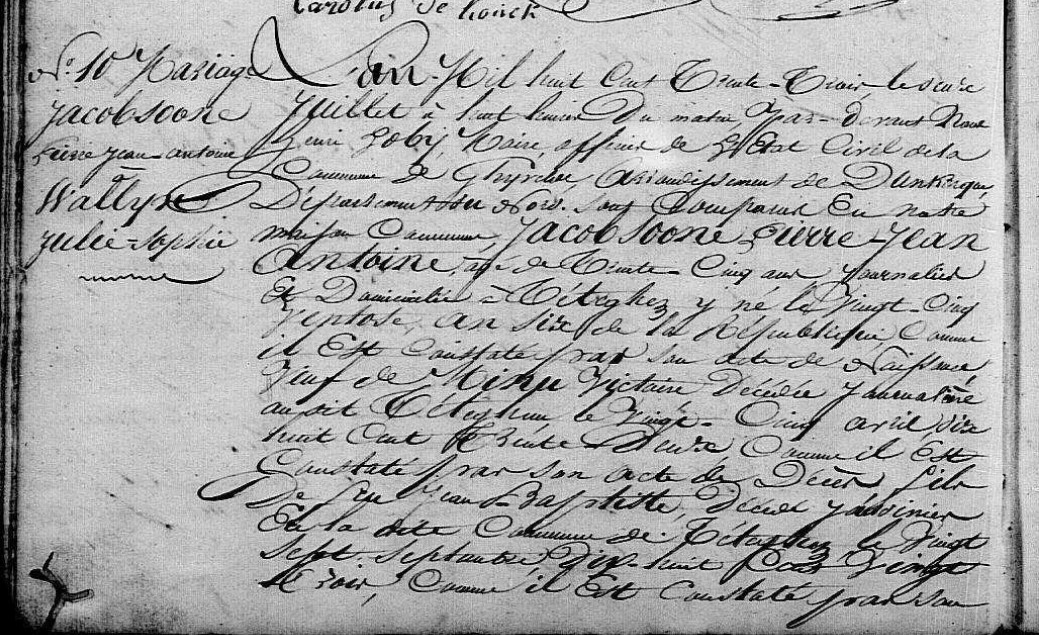 Carolus de honck
N.o 10 Mariage
Jacobsoone
pierre jean-antoine
et
Wallyn
julie-sophie
L'an Mil huit Cent Trente-Trois le onze
Juillet à huit heures Du matin Par-devant Nous
henri Maire, officier de L'Etat Civil de la
Commune de Ghyvelde, Arrondissement de Dunkerque,
Département du Nord. Sont Comparus En notre
maison Commune, Jacobsoone Pierre-Jean
Antoine, agé de Trente-Cinq ans journalier
Et Domicilié à Téteghem y né le Vingt-Cinq
Ventose, an six de la République Comme
il Est Constaté par son acte de Naissance,
Veuf de Victoire Décédée journalière
au dit Téteghem, le Vingt-Cinq avril, dix
huit Cent Trente-Deux Comme il Est
Constaté par son acte de Décès fils
De feu Jean-Baptiste, Décédé
En la dite Commune de Téteghem le Vingt
Sept Septembre, Dix-huit Cent Vingt
Trois, Comme il Est Constaté par son